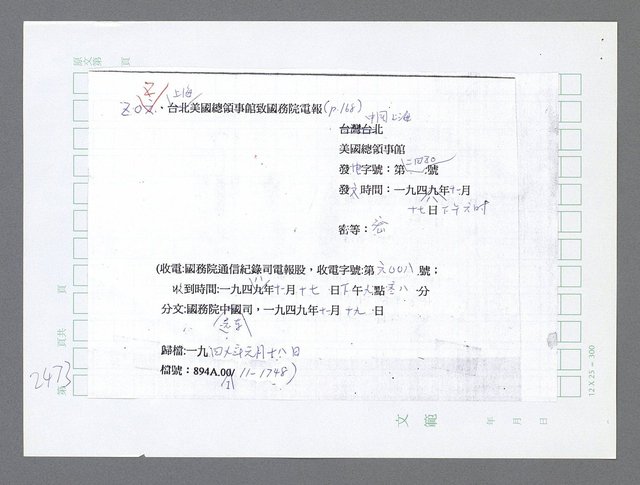 原文第 頁
上海
台北美國總領事館致國務院電報(p.168)
中國上海
台灣台北
美國總領事館
發電字號：第 號
發文時間：一九四九年十一月
十七日下午六時
密等：密
(收電:國務院通信紀錄司電報股，收電字號:第六00八號；
收到時間:一九四九年十一月十七 日下午 點 八 分
分文:國務院中國司，一九四九年十一月十九日
遠東
歸檔:一九 年元月十八日
檔號：894A.00/11-1748)
頁共 頁
第
2473
文範
年 月 日
12 X 25 = 300